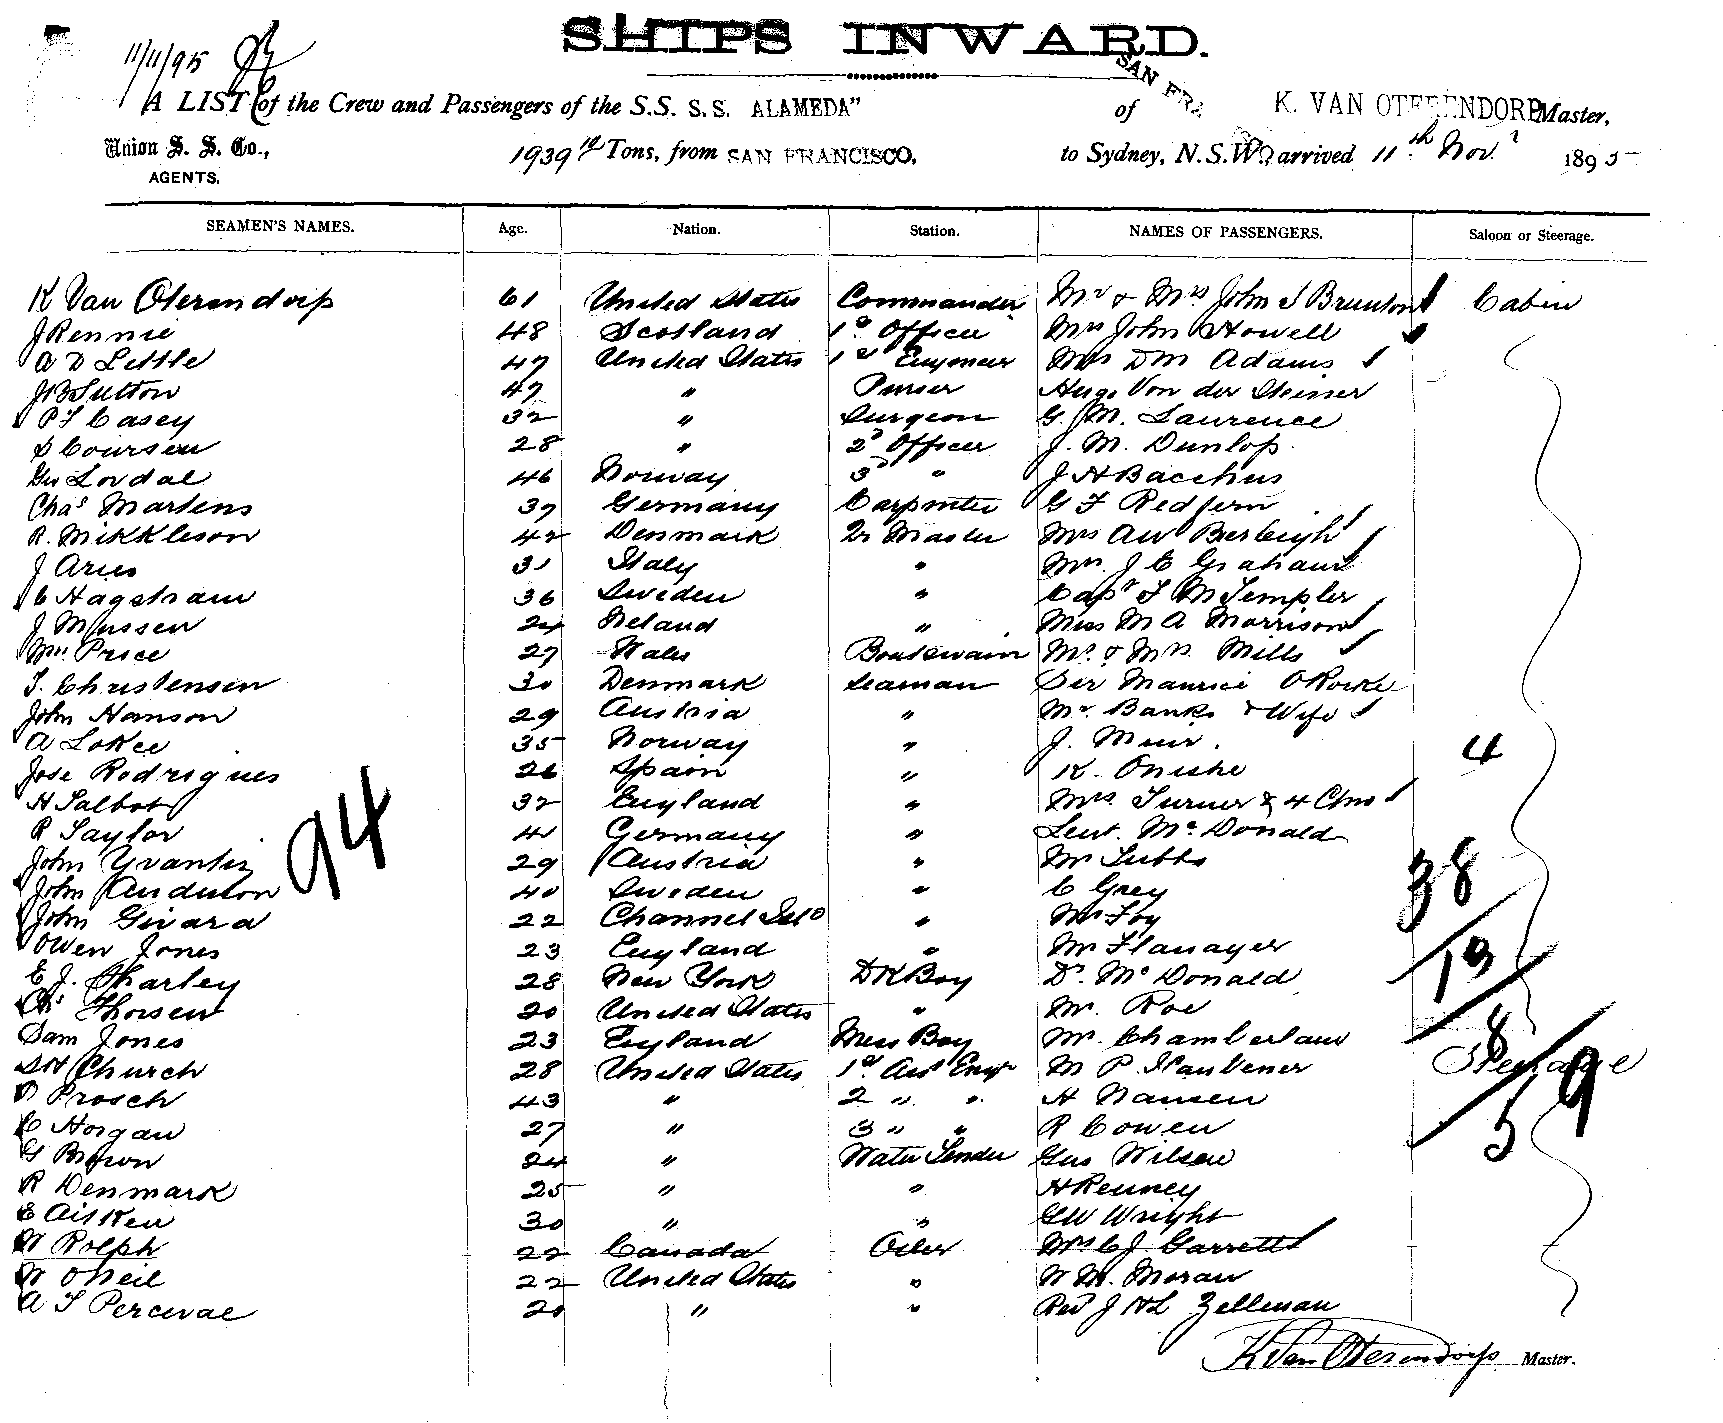 SHIPS INWARD.
11/11/95
A LIST of the Crew and Passengers of the S.S. S.S. ALAMEDA" of SAN FRA K. VAN OTERENDORP Master,
Union S. S. Co., AGENTS.
1939 Tons, from SAN FRANCISCO, to Sydney, N.S.W., arrived 11th Nov. 1895
SEAMEN'S NAMES. Age. Nation. Station. NAMES OF PASSENGERS. Saloon or Steerage.
K Van Oterendorp 61 United States Commander Mr & Mrs John S Brunton Cabin
J Rennie 48 Scotland 1st Officer Mrs John Howell
A D Little 47 United States 1st Engineer Mrs D M Adams
J B Sutton 47 " Purser Hugo Von der Steiner
P F Casey 32 " Surgeon G. M. Laurence
D Coursen 28 " 2d Officer J. M. Dunlop.
Geo Lovdal 46 Norway 3d " J H Bacchus
Chas Martens 37 Germany Carpenter G F Redfern
R. Mikkleson 42 Denmark Qr Master Mrs AW Berleigh
J Aries 31 Italy " Mrs. J C Graham
C Hagstram 36 Sweden " Capt F M Templer
J Mussen 24 Ireland " Miss M A Morrison
Wm Price 27 Wales Boatswain Mr. & Mrs. Mills
T. Christensen 30 Denmark Seaman Sir Maurice O'Rorke
John Hanson 29 Austria " Mr. Banks & Wife
A Lokee 35 Norway " J. Muir. 4
Jose Rodrigues 26 Spain " K. Onishe
H Talbot 32 England " Mrs. Turner & 4 Chns
R Taylor 41 Germany " Leut. Mc Donald
94
John Yvantiz 29 Austria " Mr Tubbs 38
John Anderson 40 Sweden " C Grey
John Girard 22 Channel Isld " Mr Foy
Owen Jones 23 England " Mr Flanager 13
E J. Tharley 28 New York DK Boy Dr. Mc Donald
Chs Thorsen 20 United States " Mr. Roe
Sam Jones 23 England Mess Boy Mr. Chamberlain 8
D H Church 28 United States 1st Asst Engr M P. Haubener Steerage
P Prosch 43 " 2 " " H Nansen 59
C Horgan 27 " 3 " " R Cowen
G Brown 24 " Water Tender Gus Wilsen
R Denmark 25 " " H Kenney
E Aitken 30 " " G W Wright
W Rolph 22 Canada Oiler Mrs C J Garrett
W O'Neil 22 United States " W M. Moran
A T Percival 20 " " Rev J H L Zelleman
K Van Oterendorp Master.